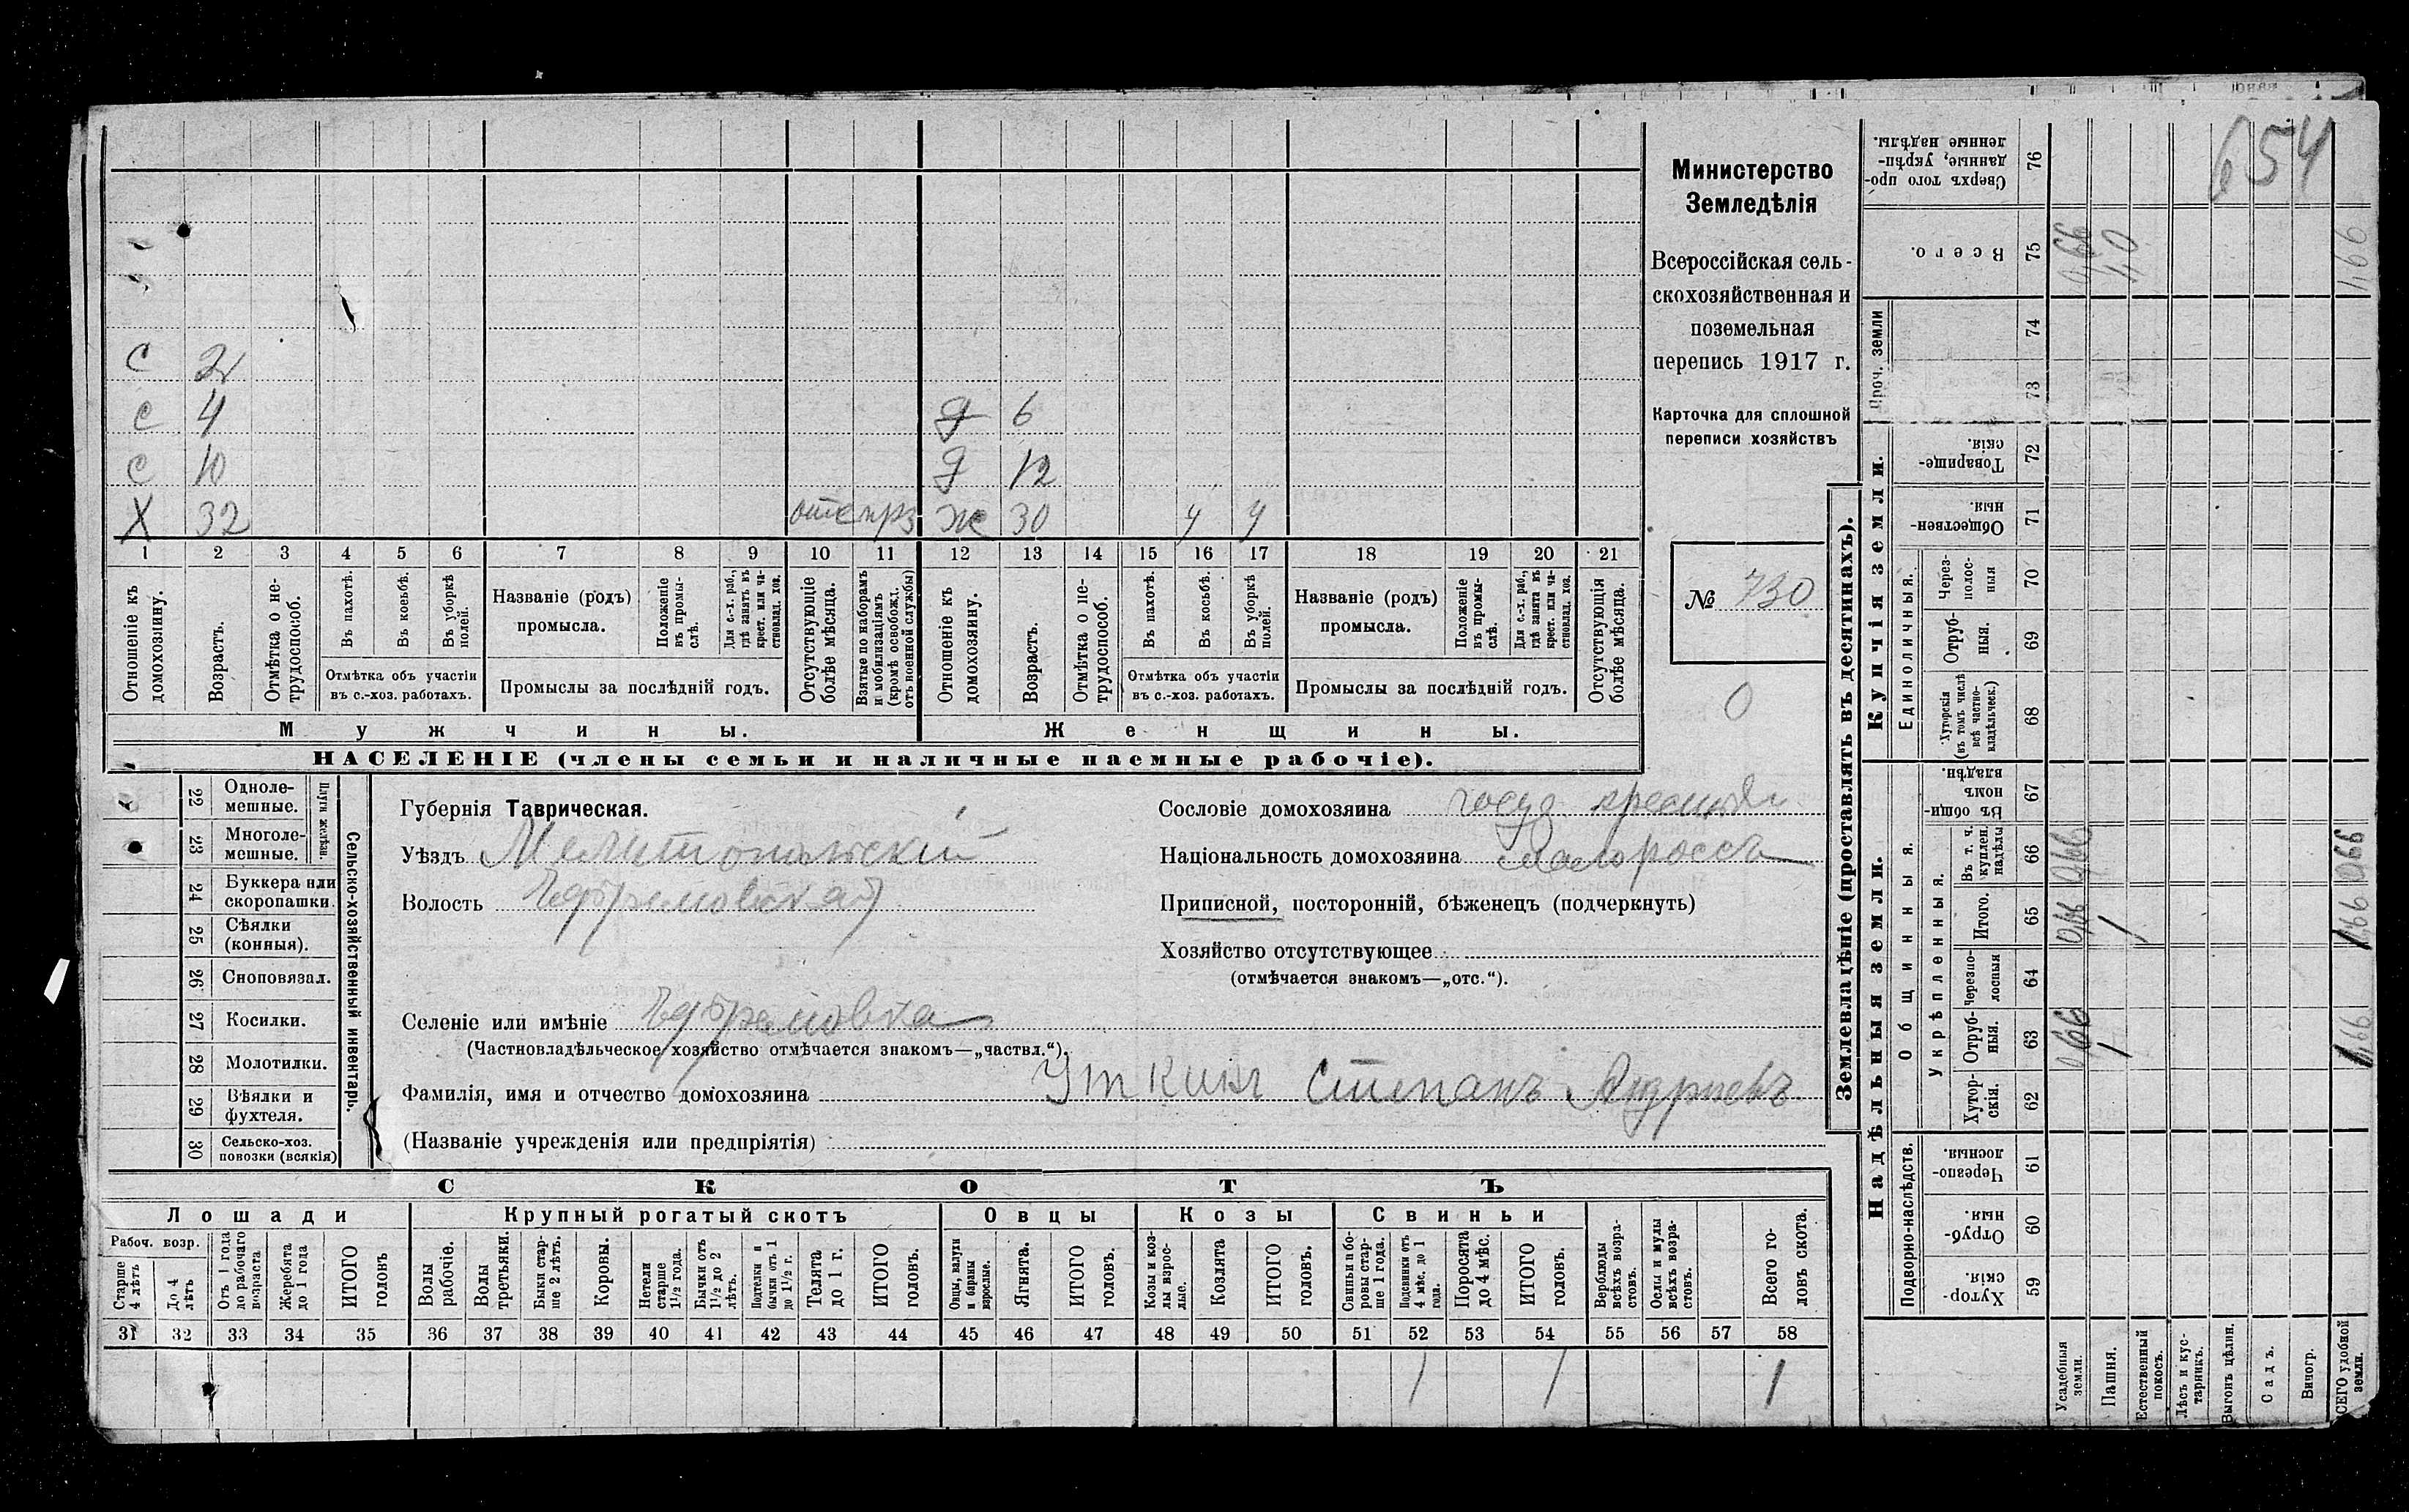 654
Министерство
Земледѣлія
Всероссійская сель-
скохозяйственная и
поземельная
перепись 1917 г.
Карточка для сплошной
переписи хозяйствъ
№ 730
0
С 2
С 4 д 6
С 10 д 12
Х 32 отс прз Ж 30 ч ч
1 2 3 4 5 6 7 8 9 10 11 12 13 14 15 16 17 18 19 20 21
Отношеніе къ домохозяину.
Возрастъ.
Отмѣтка о не-трудоспособ.
Въ пахотѣ.
Въ косьбѣ.
Въ уборкѣ полей.
Отмѣтка объ участіи
въ с.-хоз. работахъ.
Названіе (родъ)
промысла.
Положеніе въ промы-слѣ.
Для с.-х. раб., гдѣ занятъ въ крест. или ча-стновлад. хоз.
Промыслы за послѣдній годъ.
Отсутствующіе болѣе мѣсяца.
Взятые по наборамъ и мобилизаціямъ (кромѣ освобожд. отъ военной службы)
Отношеніе къ домохозяину.
Возрастъ.
Отмѣтка о не-трудоспособ.
Въ пахотѣ.
Въ косьбѣ.
Въ уборкѣ полей.
Отмѣтка объ участіи
въ с.-хоз. работахъ.
Названіе (родъ)
промысла.
Положеніе въ промы-слѣ.
Для с.-х. раб., гдѣ занята въ крест. или ча-стновлад. хоз.
Промыслы за послѣдній годъ.
Отсутствующія болѣе мѣсяца.
Мужчины.
Женщины.
НАСЕЛЕНІЕ (члены семьи и наличные наемные рабочіе).
Сельско-хозяйственный инвентарь.
Плуги желѣзн.
22 Одноле-мешные.
23 Многоле-мешные.
24 Буккера или скоропашки.
25 Сѣялки (конныя).
26 Сноповязал.
27 Косилки.
28 Молотилки.
29 Вѣялки и фухтеля.
30 Сельско-хоз. повозки (всякія)
Губернія Таврическая.
Уѣздъ Мелитопольскій
Волость Ефремовская
Селеніе или имѣніе Ефремовка
(Частновладѣльческое хозяйство отмѣчается знакомъ—„частвл.“).
Сословіе домохозяина госуд.
Національность домохозяина малороссъ
Приписной, посторонній, бѣженецъ (подчеркнуть)
Хозяйство отсутствующее
(отмѣчается знакомъ—„отс.“).
Фамилія, имя и отчество домохозяина Уткинъ Степанъ
(Названіе учрежденія или предпріятія)
СКОТЪ
Лошади
Крупный рогатый скотъ
Овцы
Козы
Свиньи
Рабоч. возр.
Старше 4 лѣтъ
До 4 лѣтъ
Отъ 1 года до рабочаго возраста
Жеребята до 1 года
ИТОГО головъ
Волы рабочіе.
Волы третьяки.
Быки стар-ше 2 лѣтъ.
Коровы.
Нетели старше 1½ года.
Бычки отъ 1½ до 2 лѣтъ.
Подтелки и бычки отъ 1 до 1½ г.
Телята до 1 г.
ИТОГО головъ.
Овцы, валухи и бараны взрослые.
Ягнята.
ИТОГО головъ.
Козы и коз-лы взрос-лые.
Козлята
ИТОГО головъ.
Свиньи и бо-ровы стар-ше 1 года.
Подсвинки отъ 4 мѣс. до 1 года.
Поросята до 4 мѣс.
ИТОГО головъ.
Верблюды всѣхъ возра-стовъ.
Ослы и мулы всѣхъ возра-стовъ.
Всего го-ловъ скота.
31 32 33 34 35 36 37 38 39 40 41 42 43 44 45 46 47 48 49 50 51 52 53 54 55 56 57 58
1 1 1
Землевладѣніе (проставлять въ десятинахъ).
Надѣльныя земли.
Купчія земли.
Проч. земли
Подворно-наслѣдств.
Общинныя.
Укрѣпленныя.
Единоличныя.
59 Хутор-скія.
60 Отруб-ныя.
61 Черезпо-лосныя.
62 Хутор-скія.
63 Отруб-ныя. 0,66 1 1,66
64 Черезпо-лосныя
65 Итого. 0,66 1 1,66
66 Въ т. ч. куплен. надѣлы 0,66 0,66
67 Въ общин-номъ владѣн.
68 Хуторскія (въ томъ числѣ всѣ частно-владѣльческ.)
69 Отруб-ныя.
70 Через-полос-ныя
71 Обществен-ныя.
72 Товарище-скія.
73
74
75 Всего. 0,66 1,0 1,66
76 Сверхъ того про-данные, укрѣп-ленные надѣлы.
Усадебныя земли.
Пашня.
Естественный покосъ.
Лѣсъ и кус-тарникъ.
Выгонъ цѣлин.
Садъ.
Виногр.
ВСЕГО удобной земли.